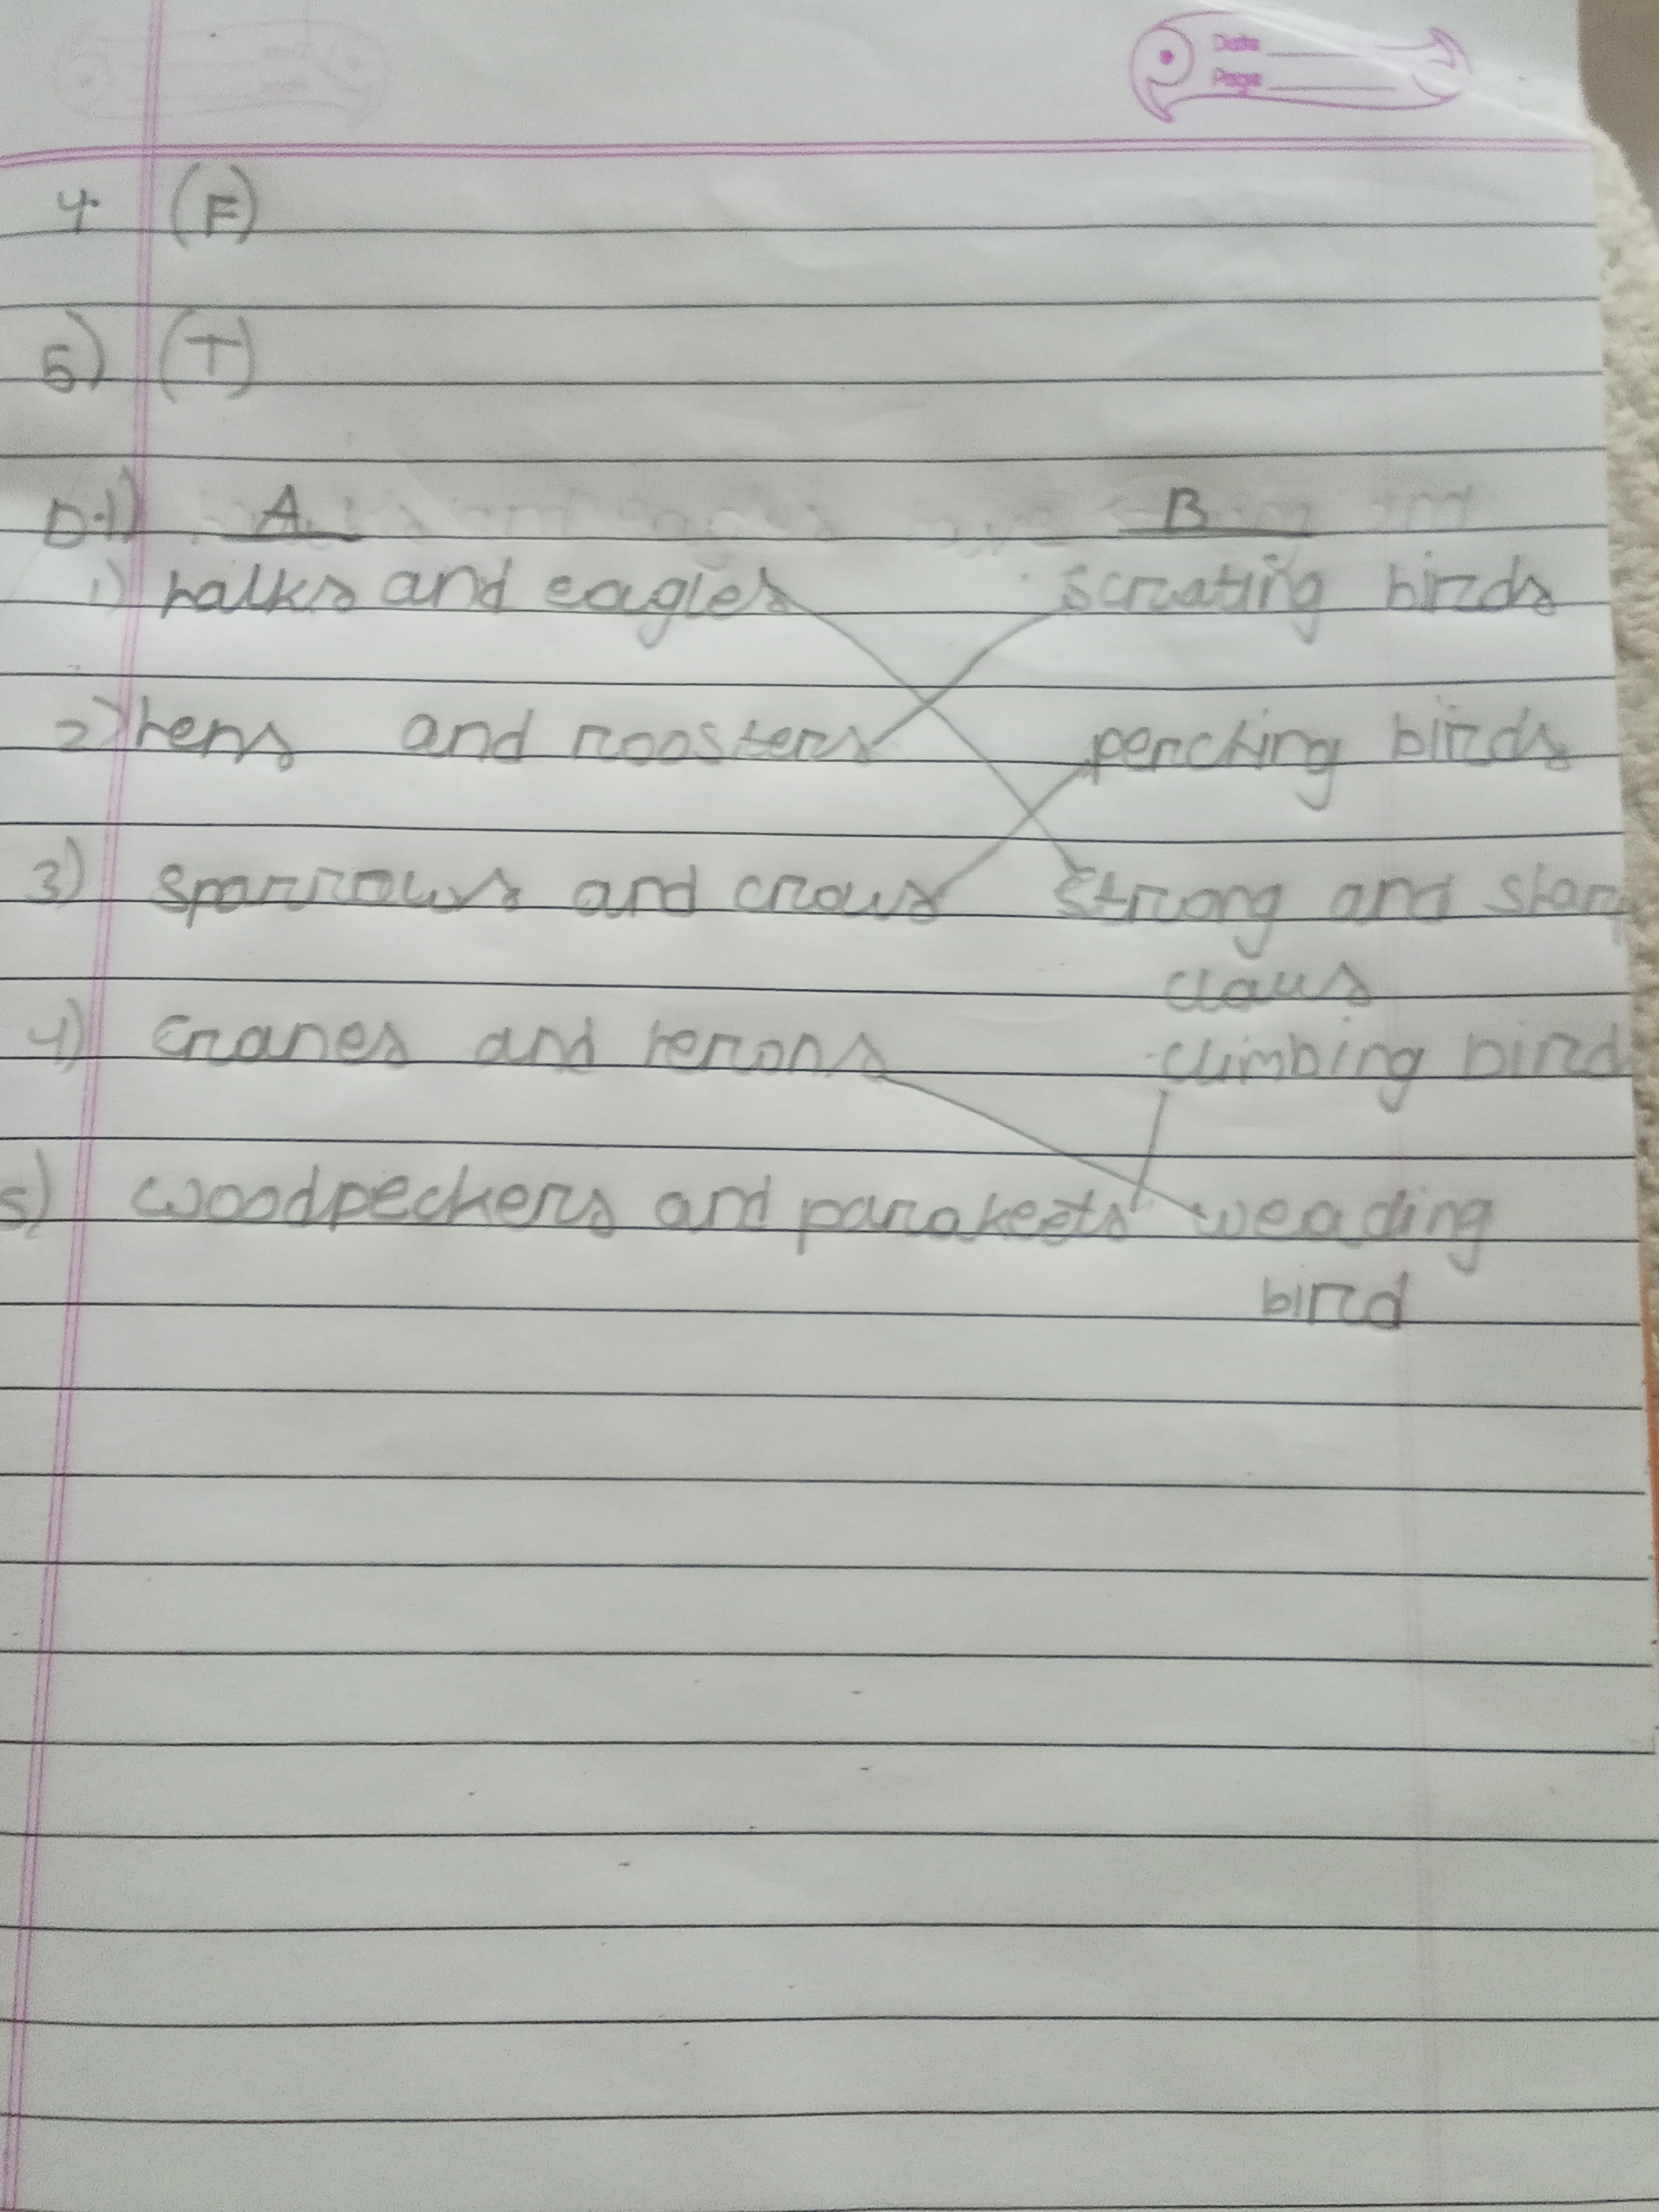 Date
Page
4. (F)
5) (T)
D.1) A B
1) halks and eagles screating birds
2) hens and roosters perching birds
3) sparrows and crows strong and sharp
claws
4) cranes and herons climbing bird
5) woodpeckers and parakeets weading
bird